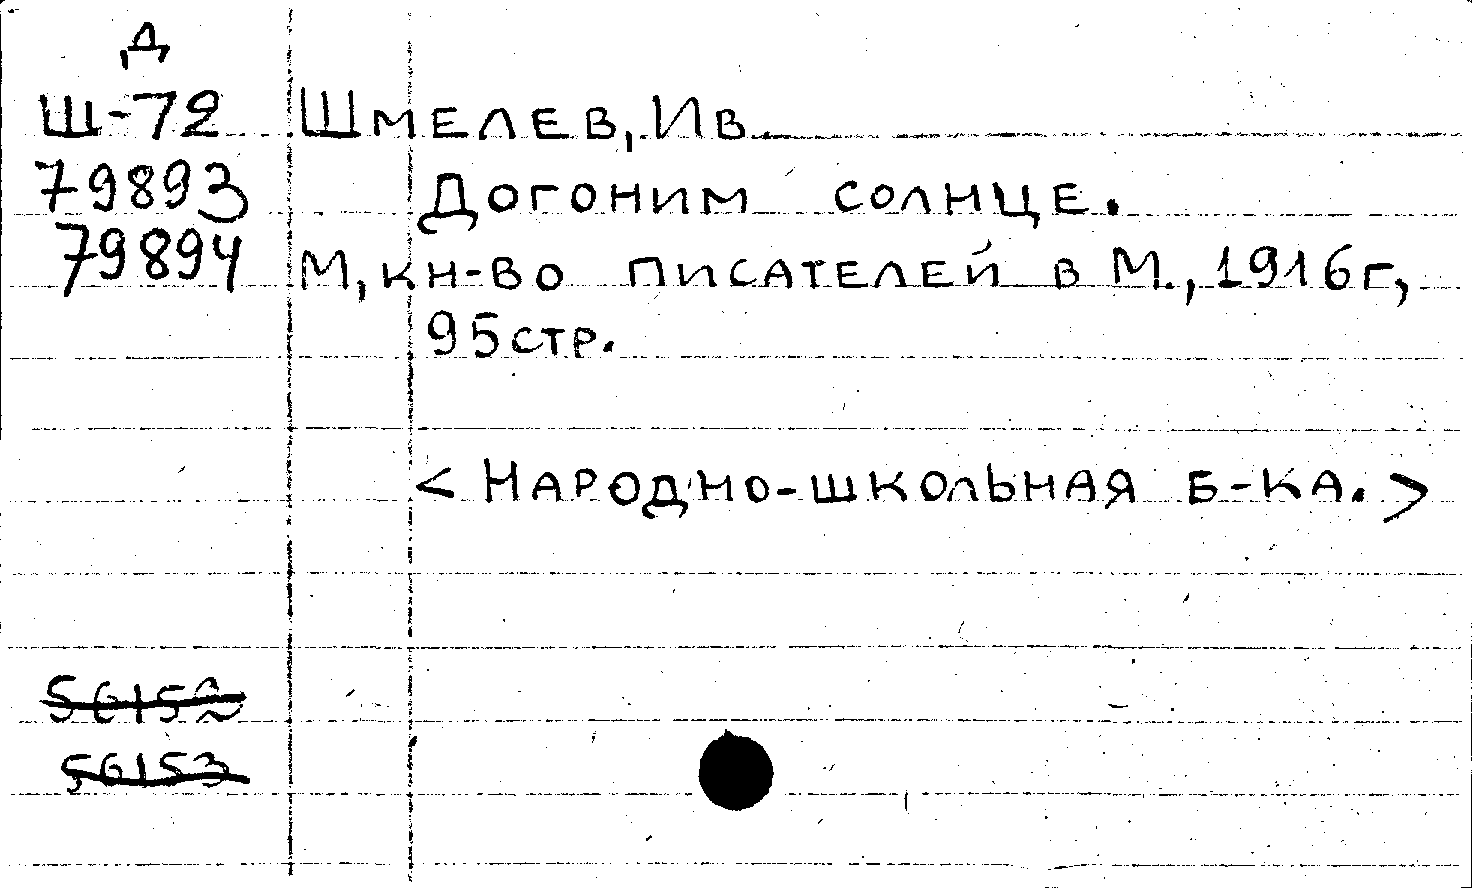 Д
Ш-72 Шмелев, Ив.
79893 Догоним солнце.
79894 М, кн-во писателей в М., 1916г,
95стр.
< Народно-школьная б-ка. >
56152
56153